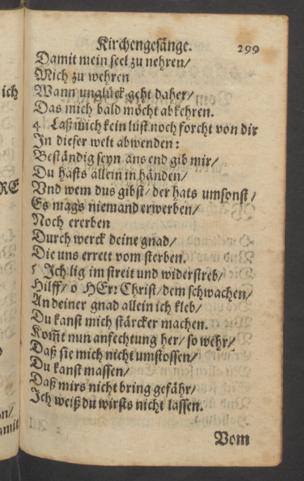 Kirchengesänge. 299
Damit mein seel zu nehren/
Mich zu wehren
Wann unglück geht daher/
Das mich bald möcht abkehren.
4. Laß mich kein lust noch forcht von dir
In dieser welt abwenden:
Beständig seyn ans end gib mir/
Du hasts allein in händen/
Vnd wem dus gibst/ der hats umsonst/
Es mags niemand erwerben/
Noch ererben
Durch werck deine gnad/
Die uns errett vom sterben.
5 Ich lig im streit und widerstreb/
Hilff/ o HErr Christ/ dem schwachen/
An deiner gnad allein ich kleb/
Du kanst mich stärcker machen.
Kom̃t nun anfechtung her/ so wehr/
Daß sie mich nicht umstossen/
Du kanst massen/
Daß mirs nicht bring gefähr/
Ich weiß du wirsts nicht lassen.
Vom
ich
RE